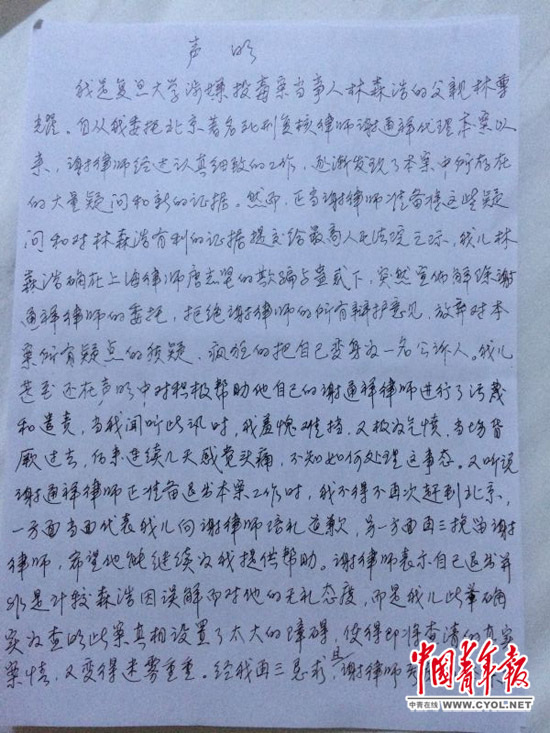 声 明
我是复旦大学涉嫌投毒案当事人林森浩的父亲林尊
耀。自从我委托北京著名死刑复核律师谢通祥代理本案以
来，谢律师经过认真细致的工作，逐渐发现了本案中所存在
的大量疑问和新的证据。然而，正当谢律师准备将这些疑
问和对林森浩有利的证据提交给最高人民法院之际，我儿林
森浩确在上海律师唐志坚的欺骗与蛊惑下，突然宣布解除谢
通祥律师的委托，拒绝谢律师的所有辩护意见，放弃对本
案所有疑点的质疑，疯狂的把自己变身为一名公诉人。我儿
甚至还在声明中对积极帮助他自己的谢通祥律师进行了污蔑
和谴责，当我闻听此讯时，我羞愧难挡，又极为气愤，当场昏
厥过去，后来连续几天感觉头痛，不知如何处理这事态。又听说
谢通祥律师正准备退出本案工作时，我不得不再次赶到北京，
一方面当面代表我儿向谢律师赔礼道歉，另一方面再三挽留谢
律师，希望他能继续为我提供帮助。谢律师表示自己退出并
非是计较森浩因误解而对他的无礼态度，而是我儿此举确
实为查明此案真相设置了太大的障碍，使得即将查清的真实
案情，又变得迷雾重重。经我再三恳求，且谢律师
中国青年报
中青在线 WWW.CYOL.NET